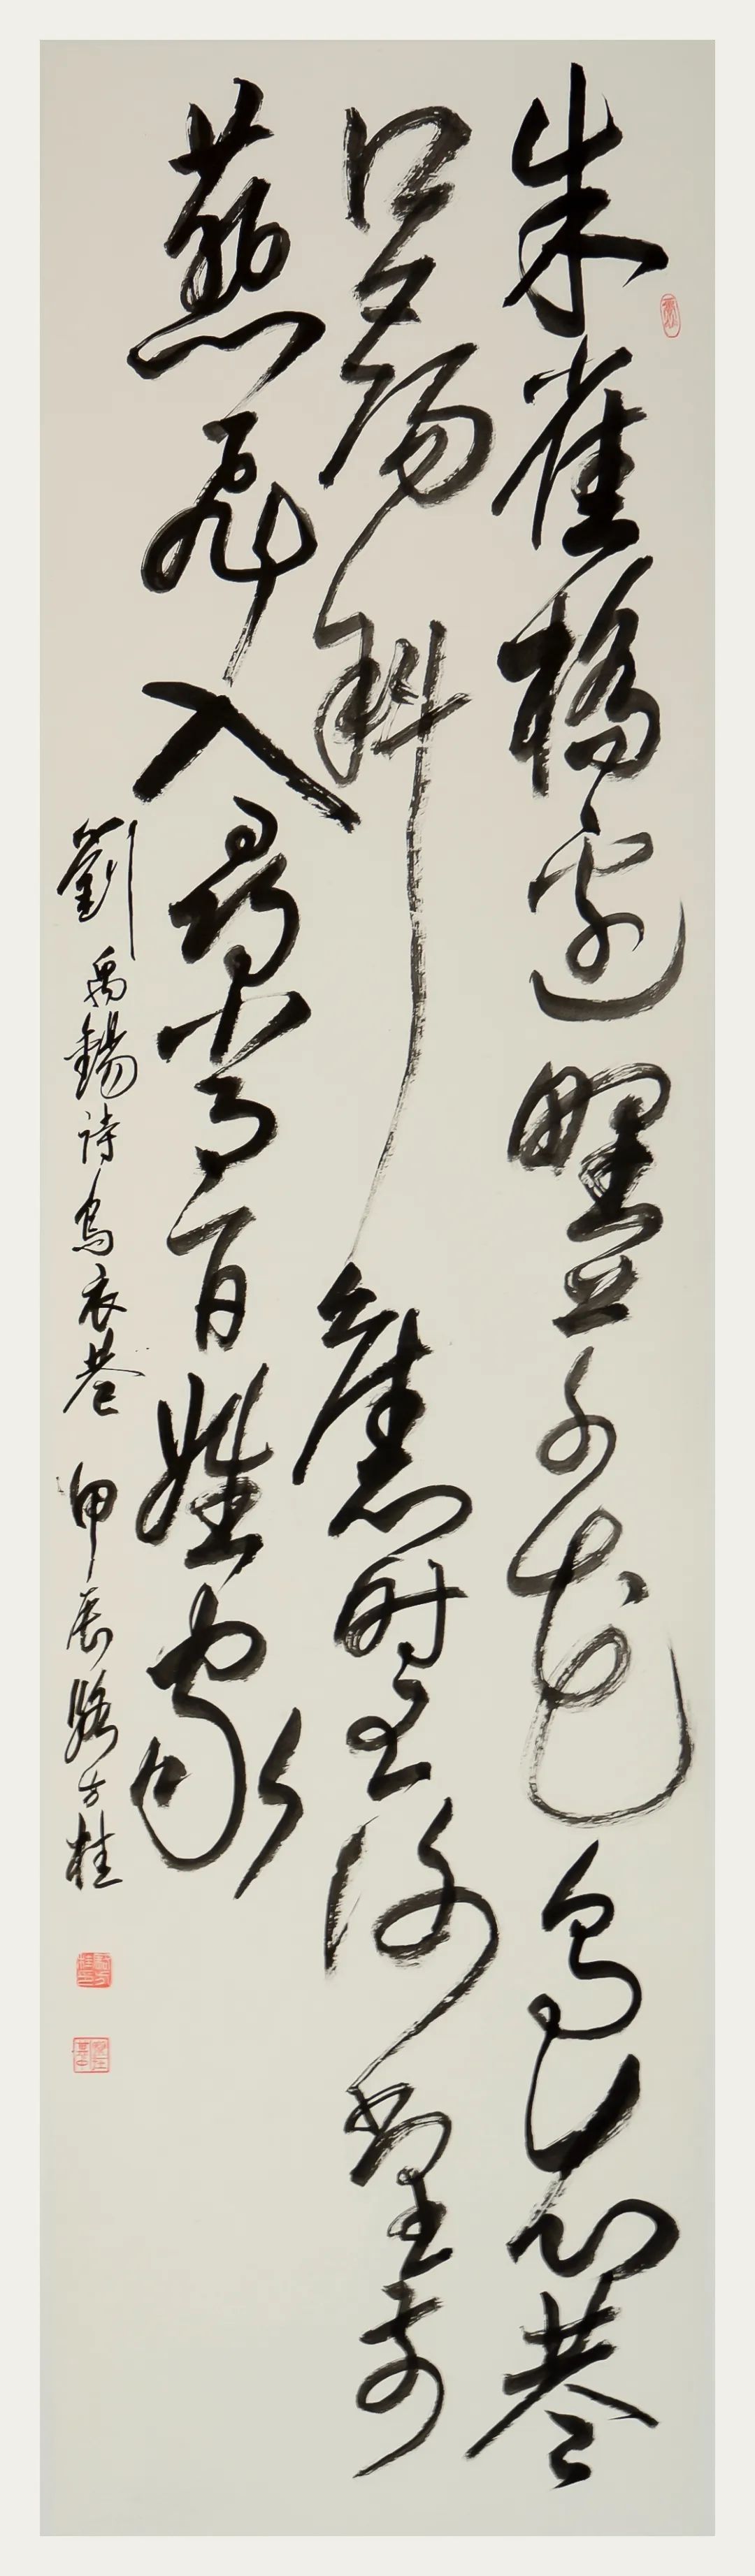 朱雀橋邊野草花烏衣巷
口夕陽斜舊時王謝堂前
燕飛入尋常百姓家
劉禹錫詩烏衣巷 甲辰 駱方桂